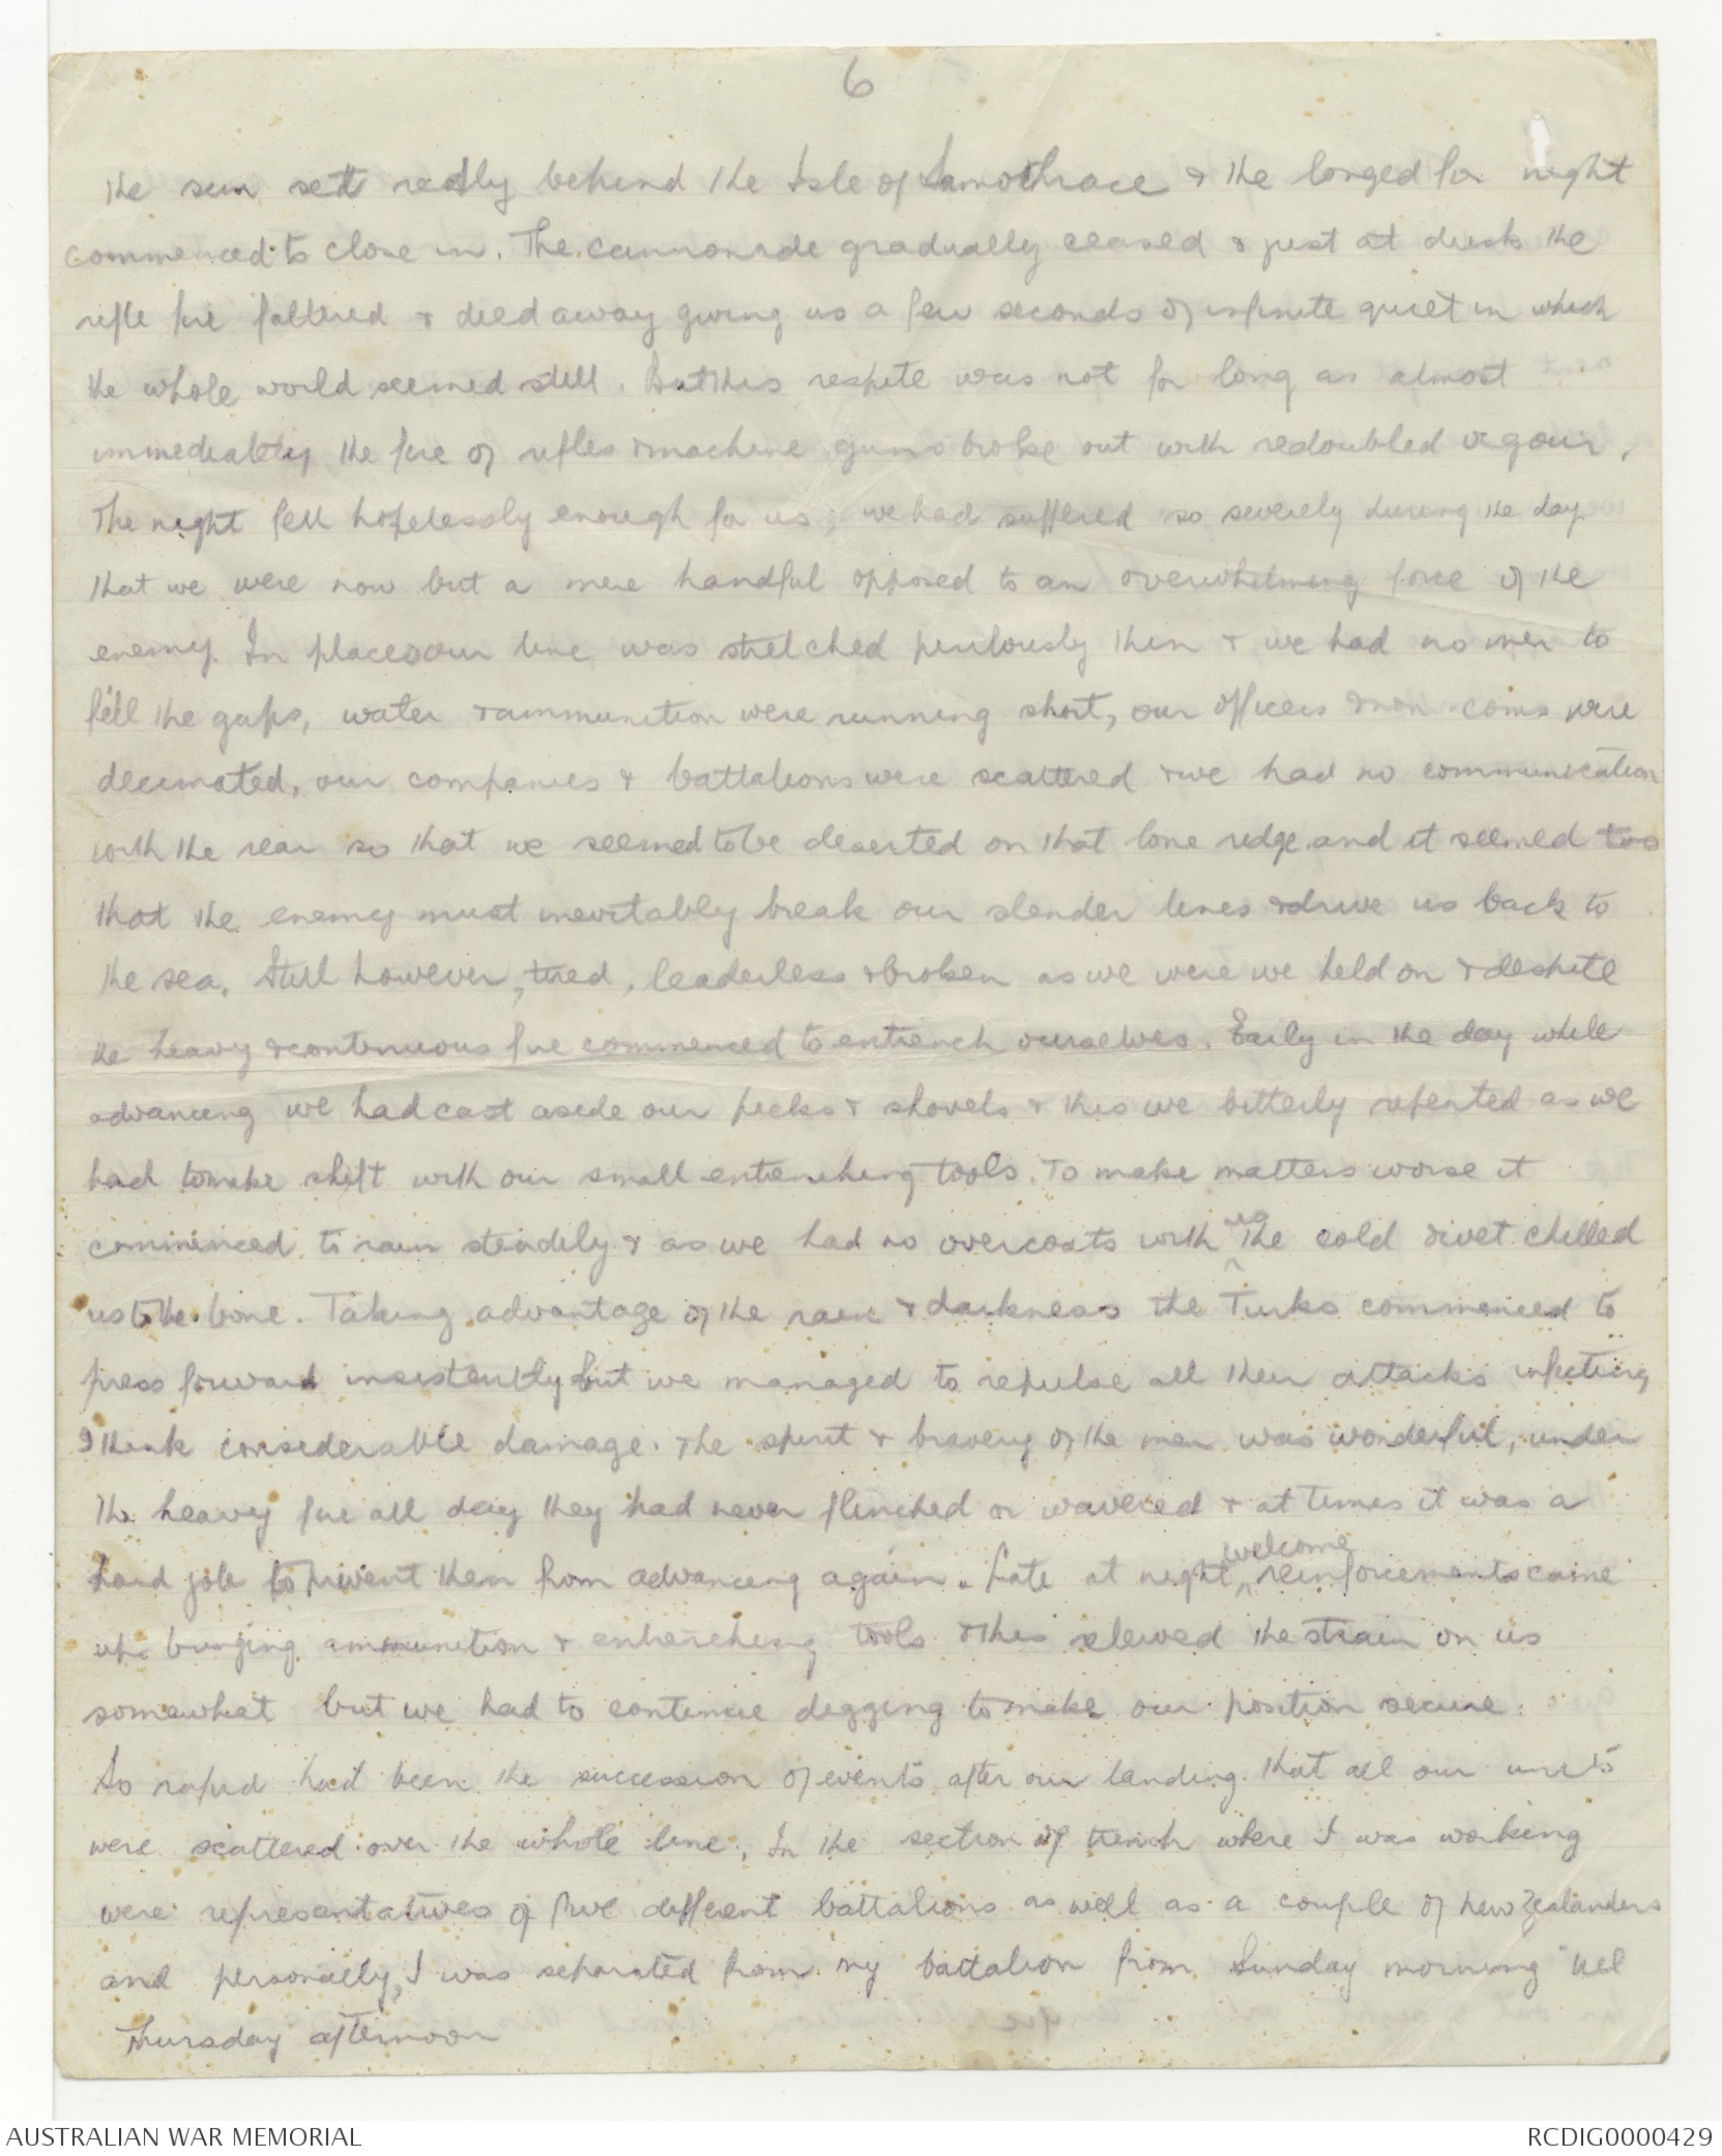 6
the sun sett redly behind the Isle of Samothrace & the longed for night
commenced to close in. The cannonade gradually ceased & just at dusk the
rifle fire faltered & died away giving us a few seconds of infinite quiet in which
the whole world seemed still. But this respite was not for long as almost
immediately the fire of rifles & machine guns broke out with redoubled vigour.
The night fell hopelessly enough for us, we had suffered so severely during the day
that we were now but a mere handful opposed to an overwhelming force of the
enemy. In places our line was stretched perilously thin & we had no men to
fill the gaps, water & ammunition were running short, our officers & non-coms were
decimated, our companies & battalions were scattered & we had no communication
with the rear so that we seemed to be deserted on that lone ridge and it seemed too
that the enemy must inevitably break our slender lines & drive us back to
the sea. Still however, tired, leaderless & broken as we were we held on & despite
the heavy & continuous fire commenced to entrench ourselves. Early in the day while
advancing we had cast aside our picks & shovels & this we bitterly repented as we
had to make shift with our small entrenching tools. To make matters worse it
commenced to rain steadily & as we had no overcoats with us the cold & wet chilled
us to the bone. Taking advantage of the rain & darkness the Turks commenced to
press forward insistently but we managed to repulse all their attacks inflicting
I think considerable damage. The spirit & bravery of the men was wonderful, under
the heavy fire all day they had never flinched or wavered & at times it was a
hard job to prevent them from advancing again. Late at night welcome reinforcements came
up bringing ammunition & entrenching tools & this relieved the strain on us
somewhat but we had to continue digging to make our position secure.
So rapid had been the succession of events after our landing that all our units
were scattered over the whole line. In the section of trench where I was working
were representatives of five different battalions as well as a couple of New Zealanders
and personally, I was separated from my battalion from Sunday morning till
Thursday afternoon
AUSTRALIAN WAR MEMORIAL
RCDIG0000429